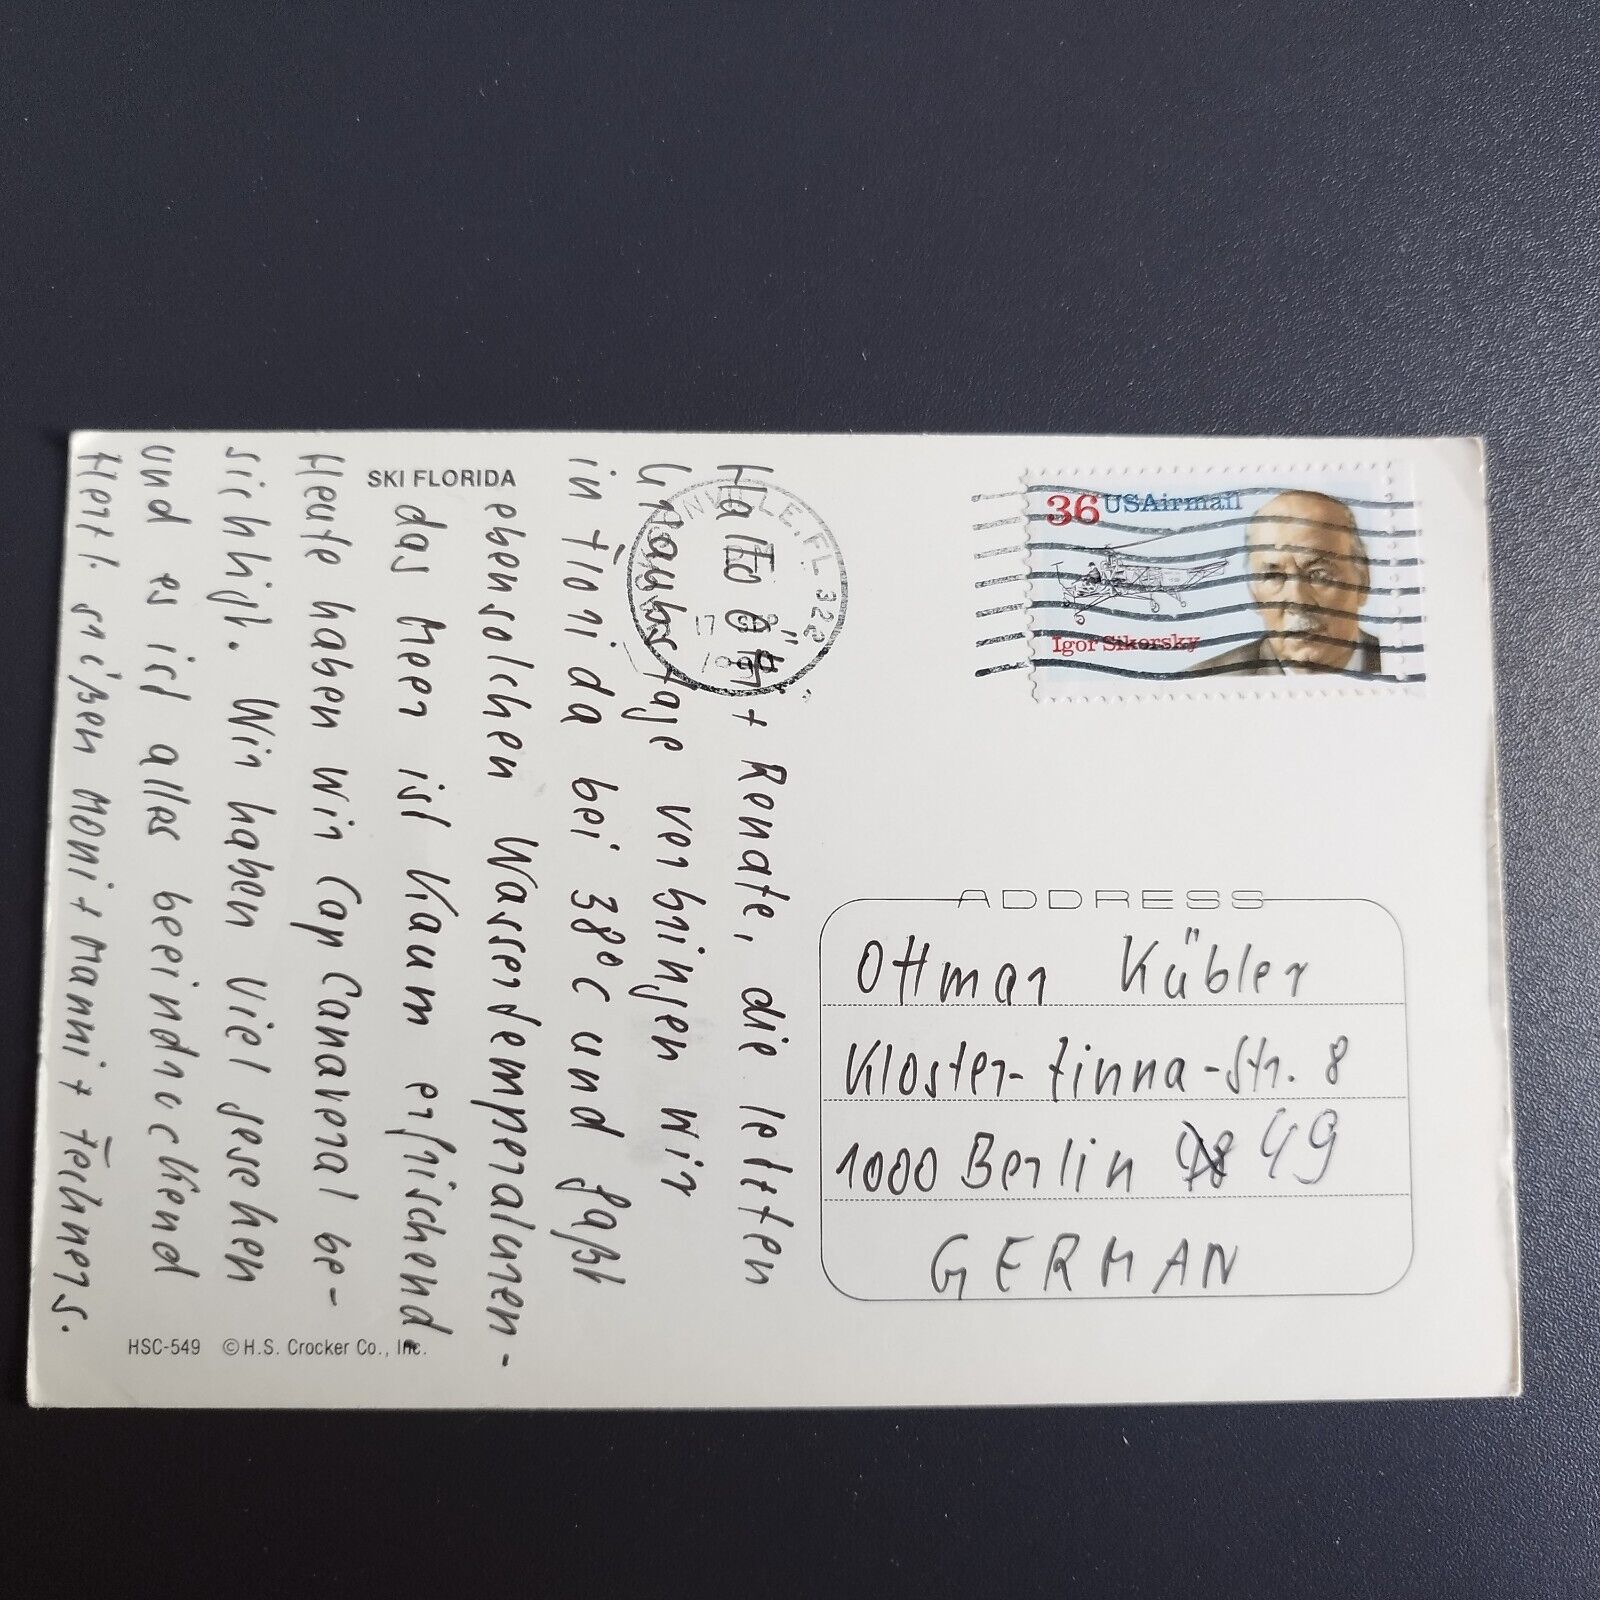 SKI FLORIDA
Hallo Ö"tt" + Renate, die letzten
Urlaubstage verbringen wir
in Florida bei 38°C und faßt
ebensolchen Wassertemperaturen-
das Meer ist kaum erfrischend.
Heute haben wir Cap Canaveral be-
sichtigt. Wir haben viel gesehen
und es ist alles beeindruckend
Herzl. grüßen Moni + Manni + Fechners.
HSC-549 © H.S. Crocker Co., Inc.
JACKSONVILLE, FL 322
17
36 USAirmail
Igor Sikorsky
ADDRESS
Ottmar Kübler
Kloster-Zinna-Str. 8
1000 Berlin 48 49
GERMAN